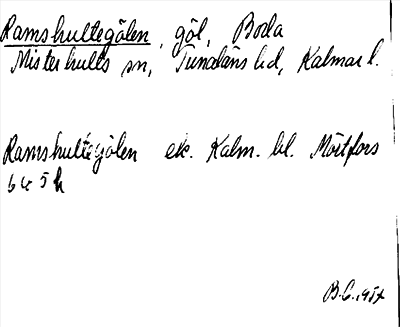 Ramshultegölen, göl, Boda
Misterhults sn, Tunaläns hd, Kalmar l.
Ramshultegölen ek. Kalm. bl. Mörtfors
6 G 5 h
B.G. 1957